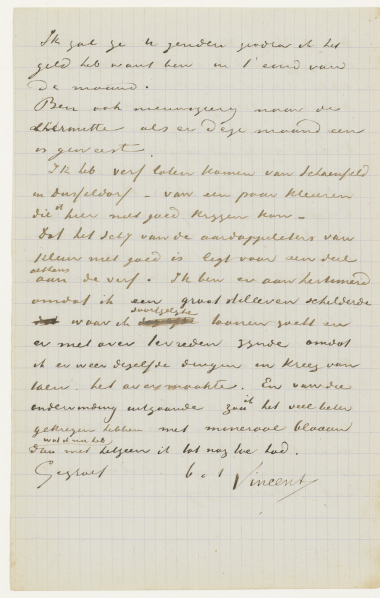 Ik zal ze U zenden zoodra ik het
geld heb want ben in 't eind van
de maand.
Ben ook nieuwsgierig naar de
Lhermitte als er deze maand een
is geweest.
Ik heb verf laten komen van Schoenfeld
in Dusseldorf – van een paar kleuren
die ik hier niet goed krijgen kan –
Dat het schij van de aardappeleters van
kleur niet goed is ligt voor een deel
althans
aan de verf. Ik ben er aan herinnerd
omdat ik een groot stilleven schilderde
waar ik dezelfde toonen zocht en
er niet over tevreden zijnde omdat
ik er weer dezelfde dingen in kreeg van
laen het overmaakte. En van die
ondervinding uitgaande zou ik het veel beter
gekregen hebben met mineraal blaauw
wat ik nu heb
dan met hetgeen ik tot nog toe had.
Gegroet b. à t. Vincent